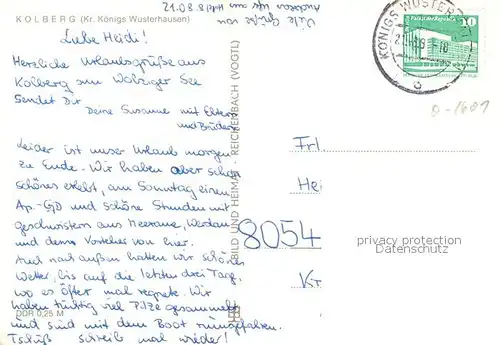 KOLBERG (Kr. Königs Wusterhausen)
Viele Grüße von
Liebe Heidi!
Herzliche Urlaubsgrüße aus
Kolberg am Wolziger See
sendet Dir
Deine Susanne mit Eltern
und Brüder
Leider ist unser Urlaub morgen
zu Ende. Wir haben aber schon
schönes erlebt, am Sonntag einen
Ap.-GD und schöne Stunden mit
geschwistern aus Meerane, Werdau
und dem Vorsteher von hier.
Auch nach außen hatten wir schönes
Wetter, bis auf die letzten drei Tage,
wo es öfter mal regnete. Wir
haben tüchtig viel Pilze gesammelt
und sind mit dem Boot rumgefahren.
Tschüß schreib mal wieder!
DDR 0,25 M
BILD UND HEIMAT REICHENBACH (VOGTL)
KÖNIGS WUSTER
10
Frl.
He
8054
Kr
privacy protection
Datenschutz